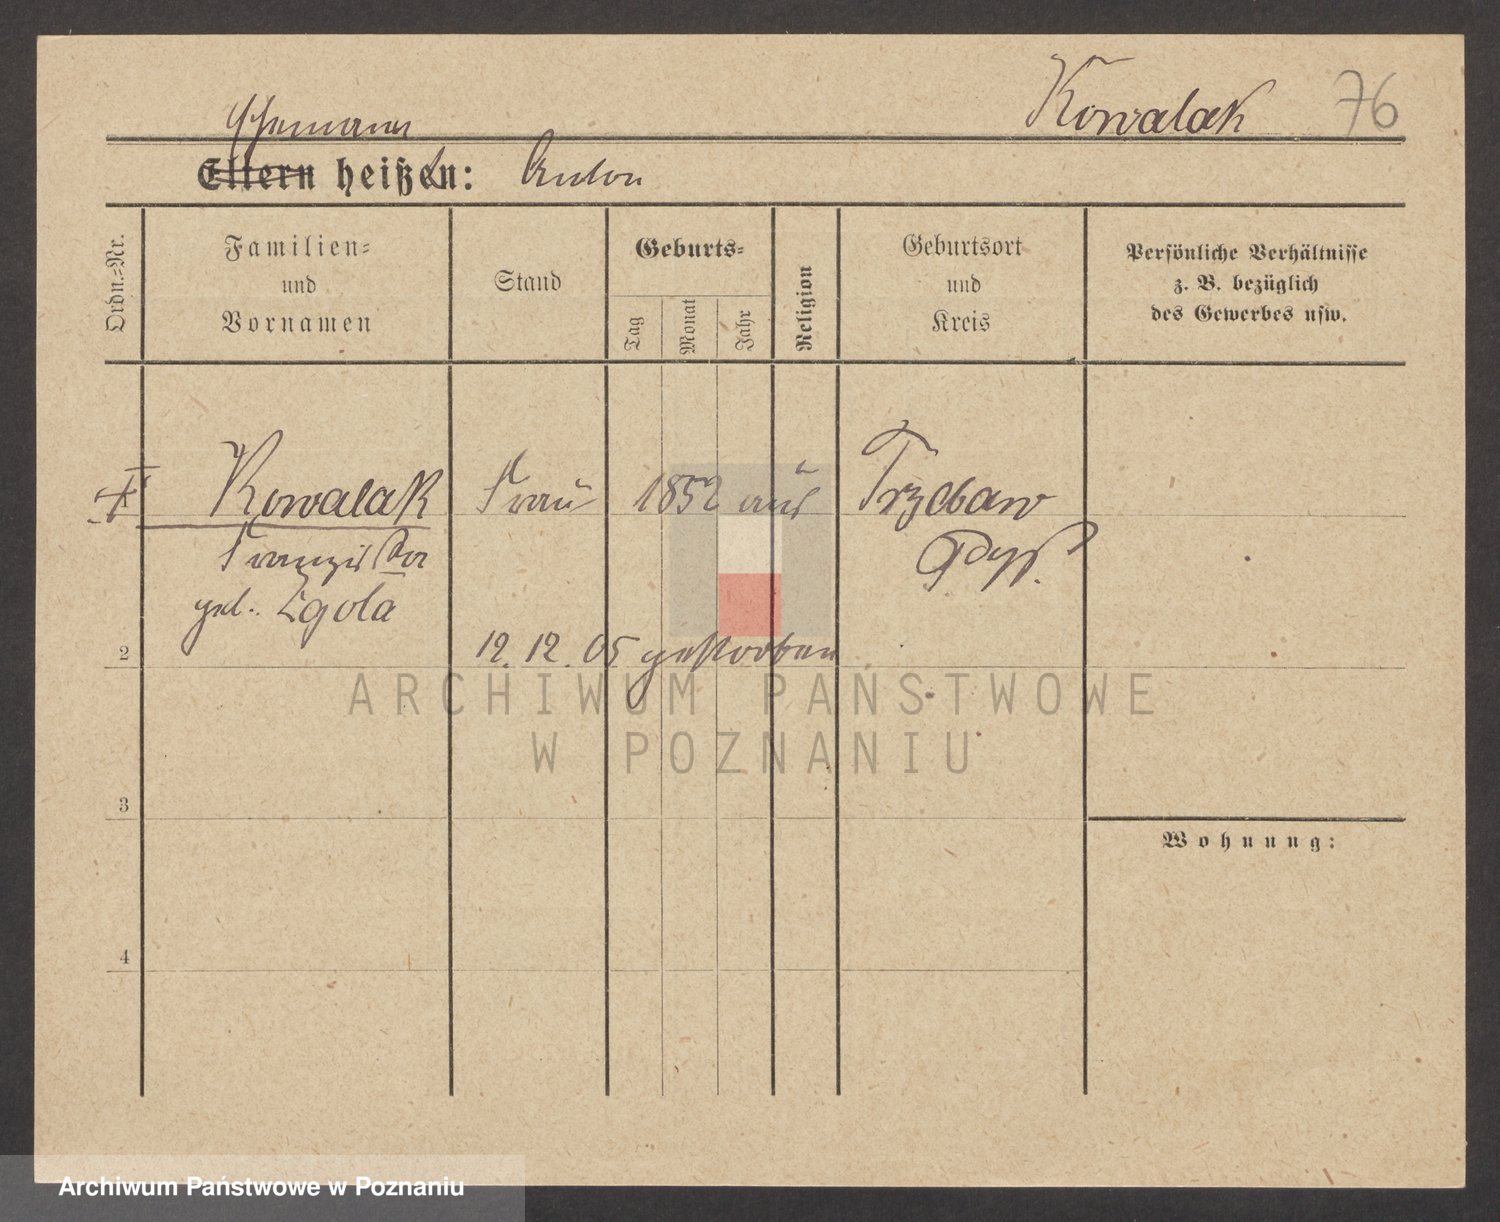 Kowalak 76
Ehemann
Eltern heißen: Anton
Ordn.-Nr.
Familien-
und
Vornamen
Stand
Geburts-
Tag
Monat
Jahr
Religion
Geburtsort
und
Kreis
Persönliche Verhältnisse
z. B. bezüglich
des Gewerbes usw.
Kowalak Frau 1852 aus Trzebaw
Franziska
geb. Zgola
2
12. 12. 05 gestorben
ARCHIWUM PAŃSTWOWE
W POZNANIU
3
Wohnung:
4
Archiwum Państwowe w Poznaniu